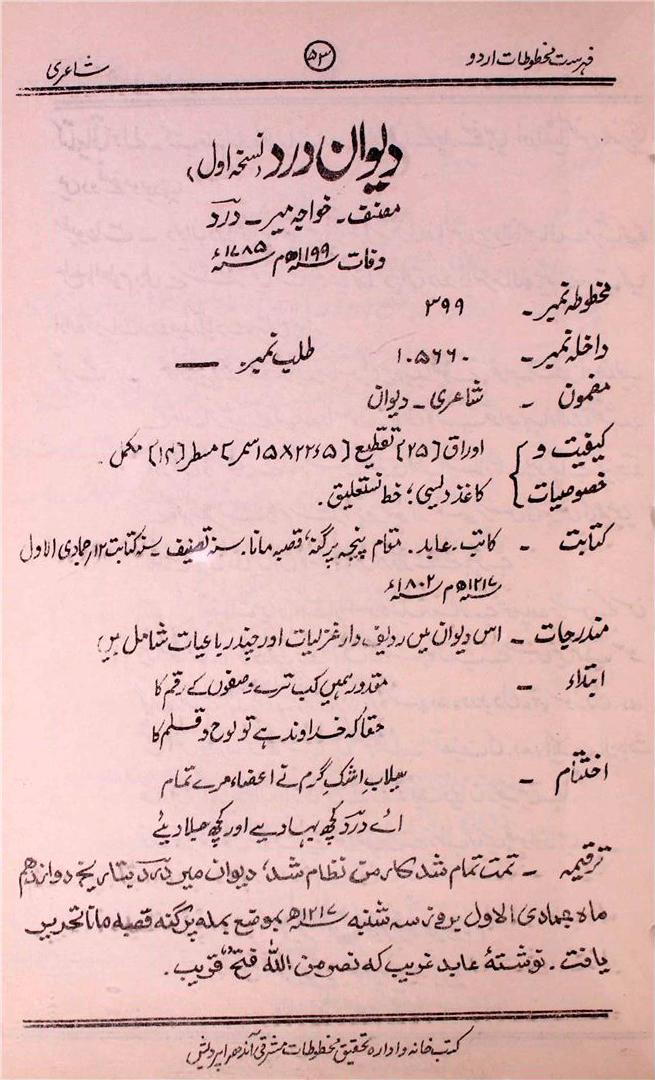 فہرست مخطوطات اردو ۵۳ شاعری
دیوانِ درد (نسخہ اول)
مصنف۔ خواجہ میر۔ دردؔ
وفات ۱۱۹۹ھ م ۱۷۸۵ء
مخطوطہ نمبر۔ ۳۹۹
داخلہ نمبر۔ ۱۰۵۶۶۰ طلب نمبر۔ ——
مضمون ۔ شاعری۔ دیوان
کیفیت و اوراق [۲۵] تقطیع [۲۲۶۵×۱۵۸ سمر] مسطر [۱۴] مکمل۔
خصوصیات کاغذ دلیسی؛ خط نستعلیق۔
کتابت ۔ کاتب۔ عابد۔ مقام پنجہ پرگنہ، قصبہ مانا۔ سنہ تصنیف سنہ کتابت ۱۲؍جمادی الاول
۱۲۱۷ھ م ۱۸۰۲ء
مندرجات ۔ اس دیوان میں ردیف دار غزلیات اور چند رباعیات شامل ہیں
ابتداء ۔ مقدور ہمیں کب ترے وصفوں کے رقم کا
حقا کہ خداوند ہے تو لوح و قلم کا
اختتام ۔ سیلابِ اشکِ گرم نے اعضاء مرے تمام
اے دردؔ کچھ بہا دیے اور کچھ جلا دیئے
ترقیمہ ۔ تمت تمام شد کار من نظام شد، دیوان میر دردؔ بتاریخ دوازدھم
ماہ جمادی الاول بروز سہ شنبہ ۱۲۱۷ھ بموضع پرگنہ قصبہ مانا تحریر
یافت۔ نوشتۂ عابد غریب کہ نصر من اللہ فتحٌ قریب۔
کتب خانہ و ادارہ تحقیق مخطوطات مشرقی آندھرا پردیش